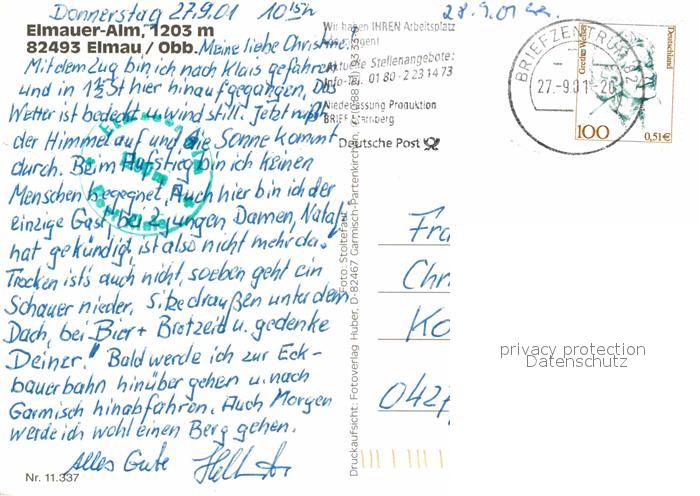 Donnerstag 27.9.01 10 15h
Elmauer-Alm, 1203 m
82493 Elmau / Obb.
Meine liebe Christine!
Mit dem Zug bin ich nach Klais gefahren
und in 1½ St hier hinaufgegangen. Das
Wetter ist bedeckt und still. Jetzt reißt
der Himmel auf und die Sonne kommt
durch. Beim Aufstieg bin ich keinen
Menschen begegnet. Auch hier bin ich der
einzige Gast, bei 2 jungen Damen,
hat gekündigt, ist also nicht mehr da.
Trocken ist's auch nicht, soeben geht ein
Schauer nieder. Sitze draußen unter dem
Dach, bei Bier + Brotzeit u. gedenke
Deiner! Bald werde ich zur Eck-
bauerbahn hinüber gehen u. nach
Garmisch hinabfahren. Auch Morgen
werde ich wohl einen Berg gehen.
Alles Gute
Nr. 11.337
Foto: Stoltefaut
Druckaufsicht: Fotoverlag Huber, D-82467 Garmisch-Partenkirchen,
28.9.01
Wir haben IHREN Arbeitsplatz
Aktuelle Stellenangebote:
Info-Tel. 01 80 - 2 23 14 73
Niederlassung Produktion
BRIEF Starnberg
Deutsche Post
BRIEFZENTRUM 82
27.-9.01-20
Grethe Weiser
Deutschland
100
0,51€
Fra
Chr
Ko
042
privacy protection
Datenschutz